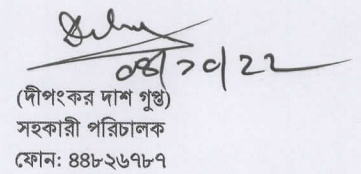 ০৪/১০/২২
(দীপংকর দাশ গুপ্ত)
সহকারী পরিচালক
ফোন: ৪৪৮২৬৭৮৭